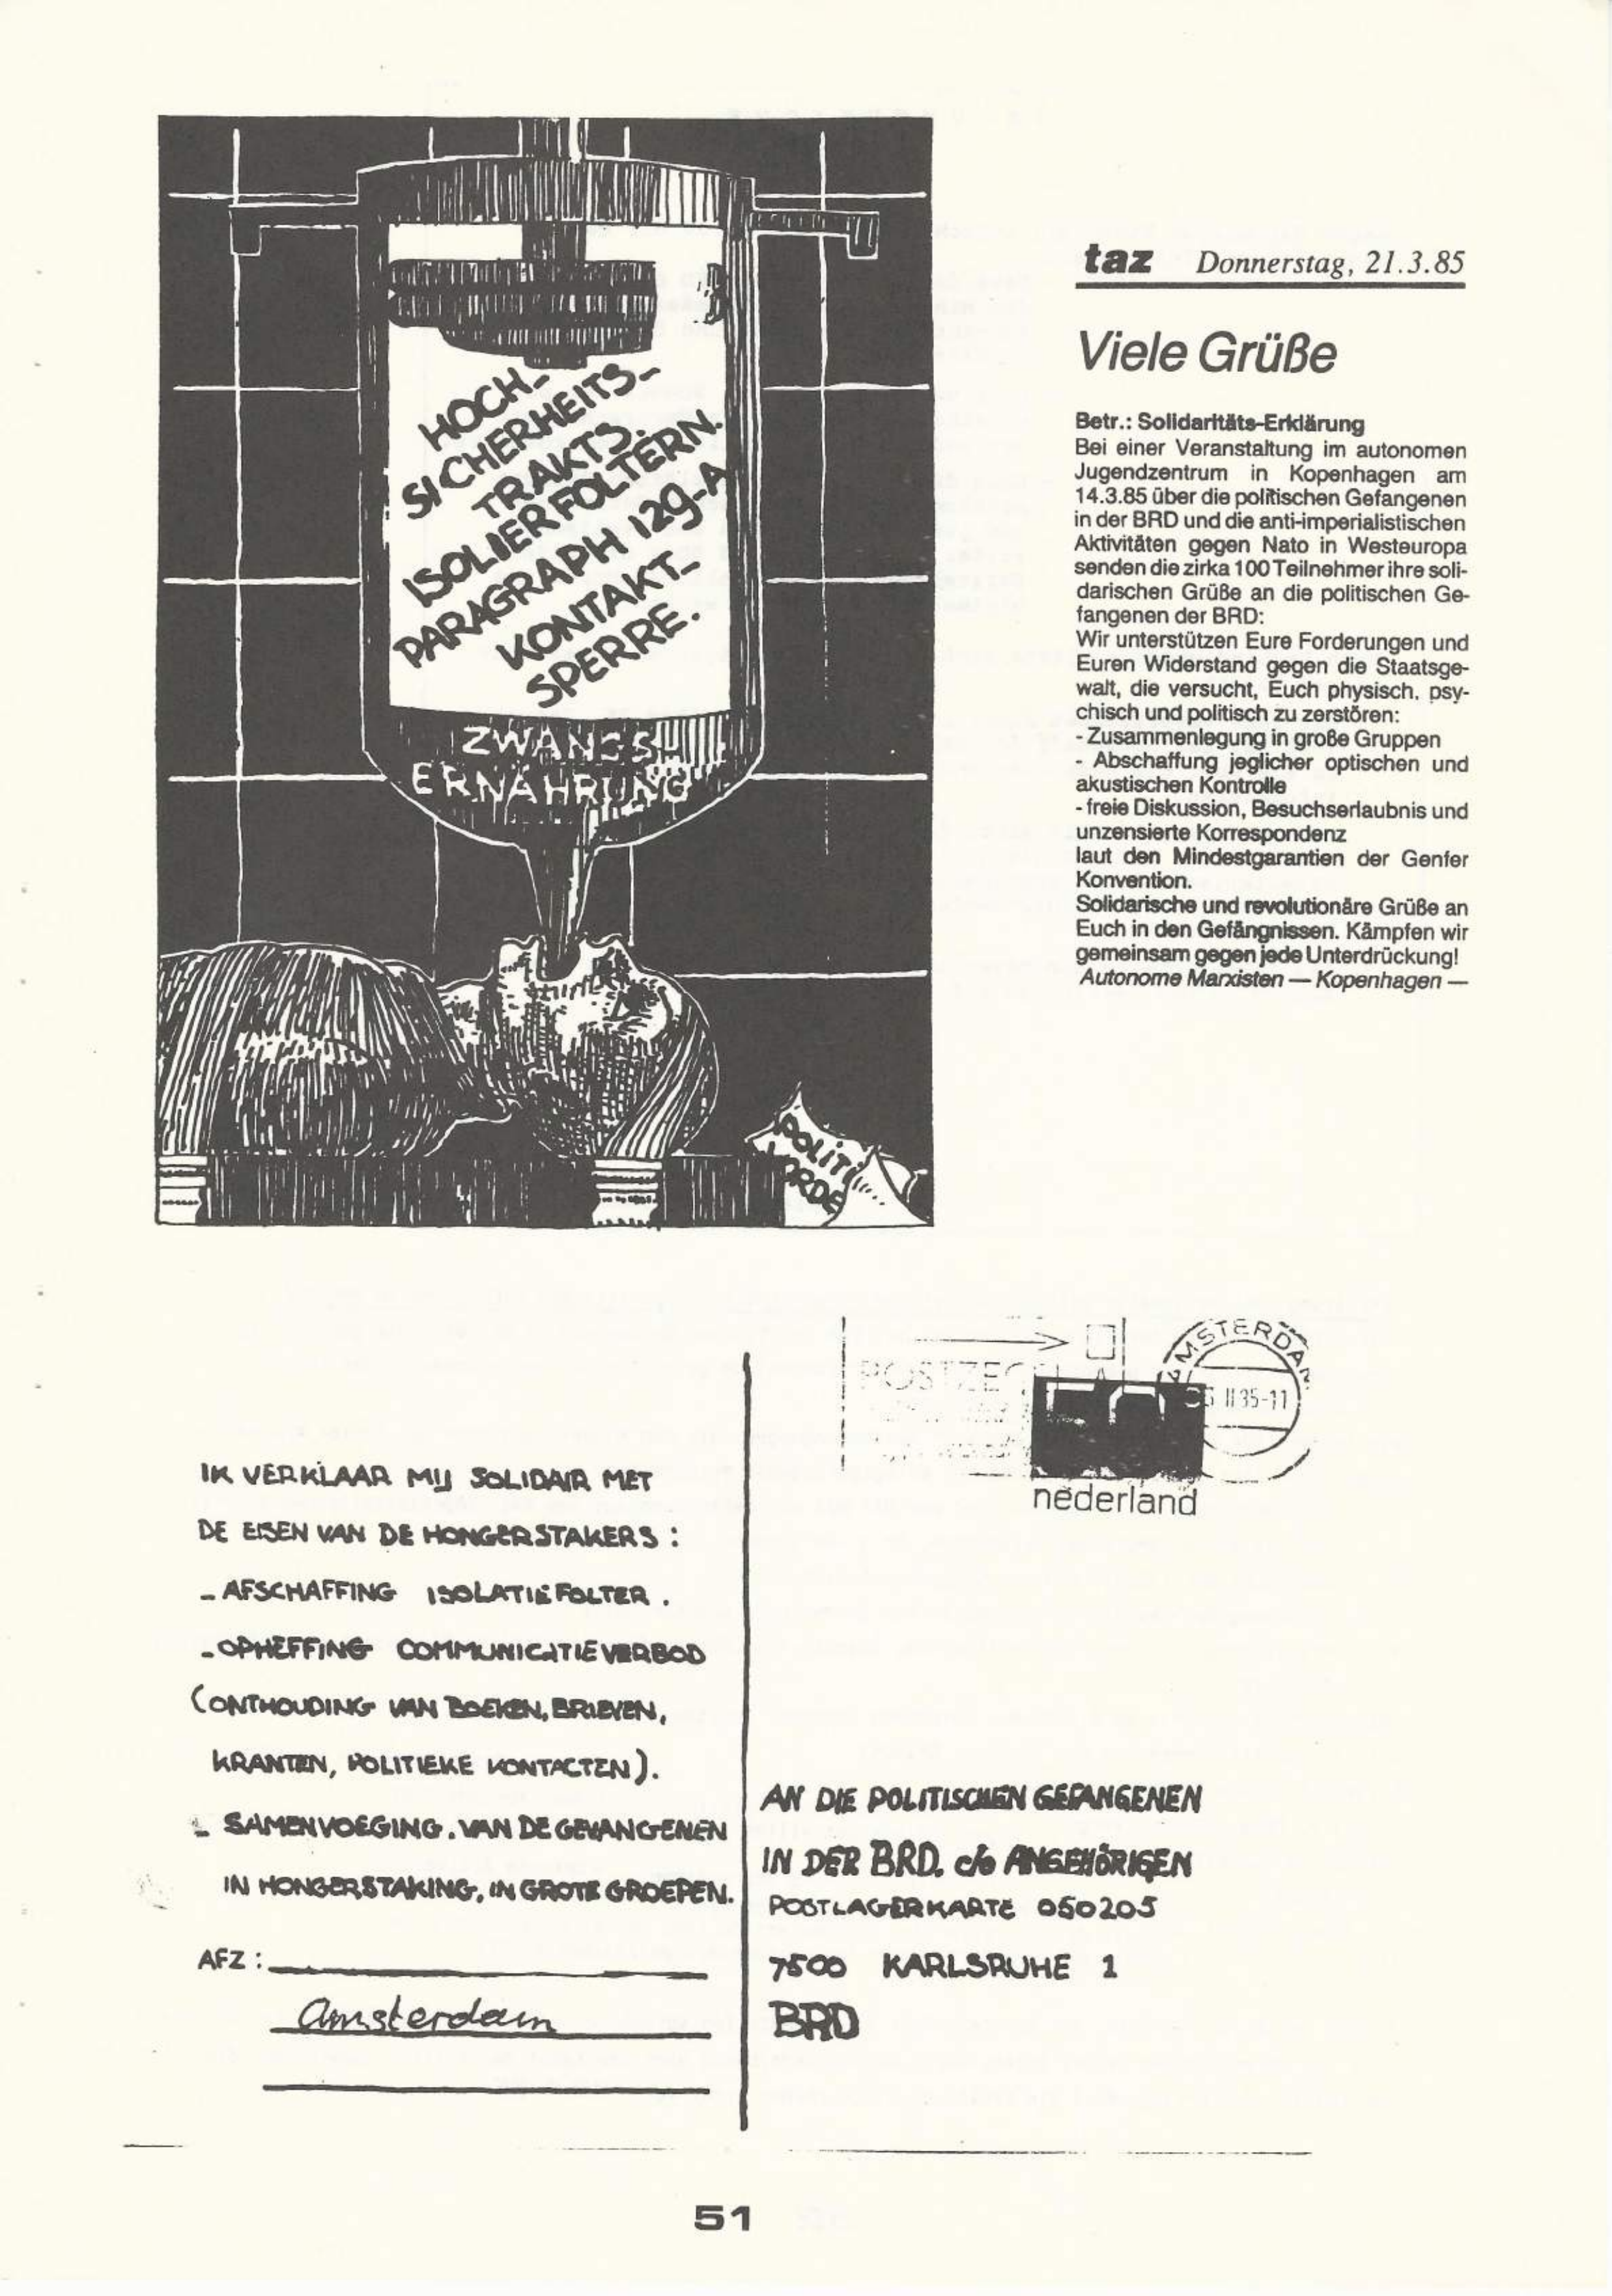 HOCH-
SICHERHEITS-
TRAKTS.
ISOLIERFOLTERN.
PARAGRAPH 129-A
KONTAKT-
SPERRE.
ZWANGS-
ERNÄHRUNG
POLIT
ORDE
taz Donnerstag, 21.3.85
Viele Grüße
Betr.: Solidaritäts-Erklärung
Bei einer Veranstaltung im autonomen
Jugendzentrum in Kopenhagen am
14.3.85 über die politischen Gefangenen
in der BRD und die anti-imperialistischen
Aktivitäten gegen Nato in Westeuropa
senden die zirka 100 Teilnehmer ihre soli-
darischen Grüße an die politischen Ge-
fangenen der BRD:
Wir unterstützen Eure Forderungen und
Euren Widerstand gegen die Staatsge-
walt, die versucht, Euch physisch. psy-
chisch und politisch zu zerstören:
- Zusammenlegung in große Gruppen
- Abschaffung jeglicher optischen und
akustischen Kontrolle
- freie Diskussion, Besuchserlaubnis und
unzensierte Korrespondenz
laut den Mindestgarantien der Genfer
Konvention.
Solidarische und revolutionäre Grüße an
Euch in den Gefängnissen. Kämpfen wir
gemeinsam gegen jede Unterdrückung!
Autonome Marxisten — Kopenhagen —
IK VERKLAAR MIJ SOLIDAIR MET
DE EISEN VAN DE HONGERSTAKERS :
- AFSCHAFFING ISOLATIEFOLTER .
- OPHEFFING COMMUNICATIEVERBOD
(ONTHOUDING VAN BOEKEN, BRIEVEN,
KRANTEN, POLITIEKE KONTACTEN).
- SAMENVOEGING. VAN DE GEVANGENEN
IN HONGERSTAKING, IN GROTE GROEPEN.
AFZ :
Amsterdam
POSTZEGEL
AMSTERDAM
II 85-11
nederland
AN DIE POLITISCHEN GEFANGENEN
IN DER BRD. c/o ANGEHÖRIGEN
POSTLAGERKARTE 050205
7500 KARLSRUHE 1
BRD
51